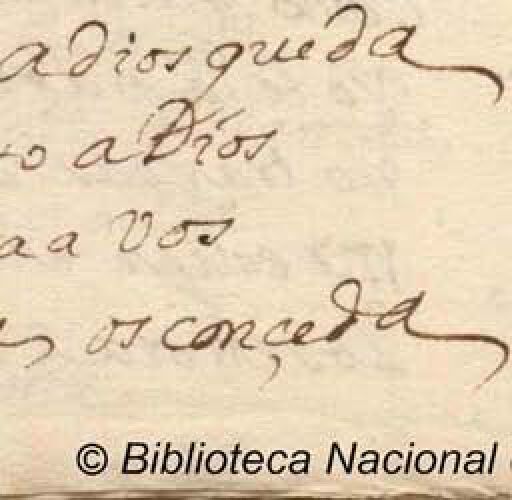 adios queda
to a Dios
a a vos
os conçeda
© Biblioteca Nacional